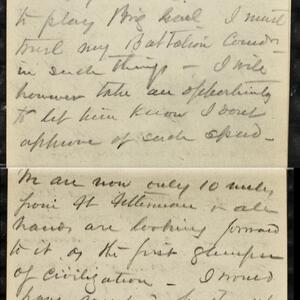 to play Brig Genl - I must
trust my Battalion Comdrs
in such things - I will
however take an opportunity
to let him know I don't
approve of such speed -
We are now only 10 miles
from Ft Fetterman & all
hands are looking forward
to it as the first glimpse
of Civilization - I would
have